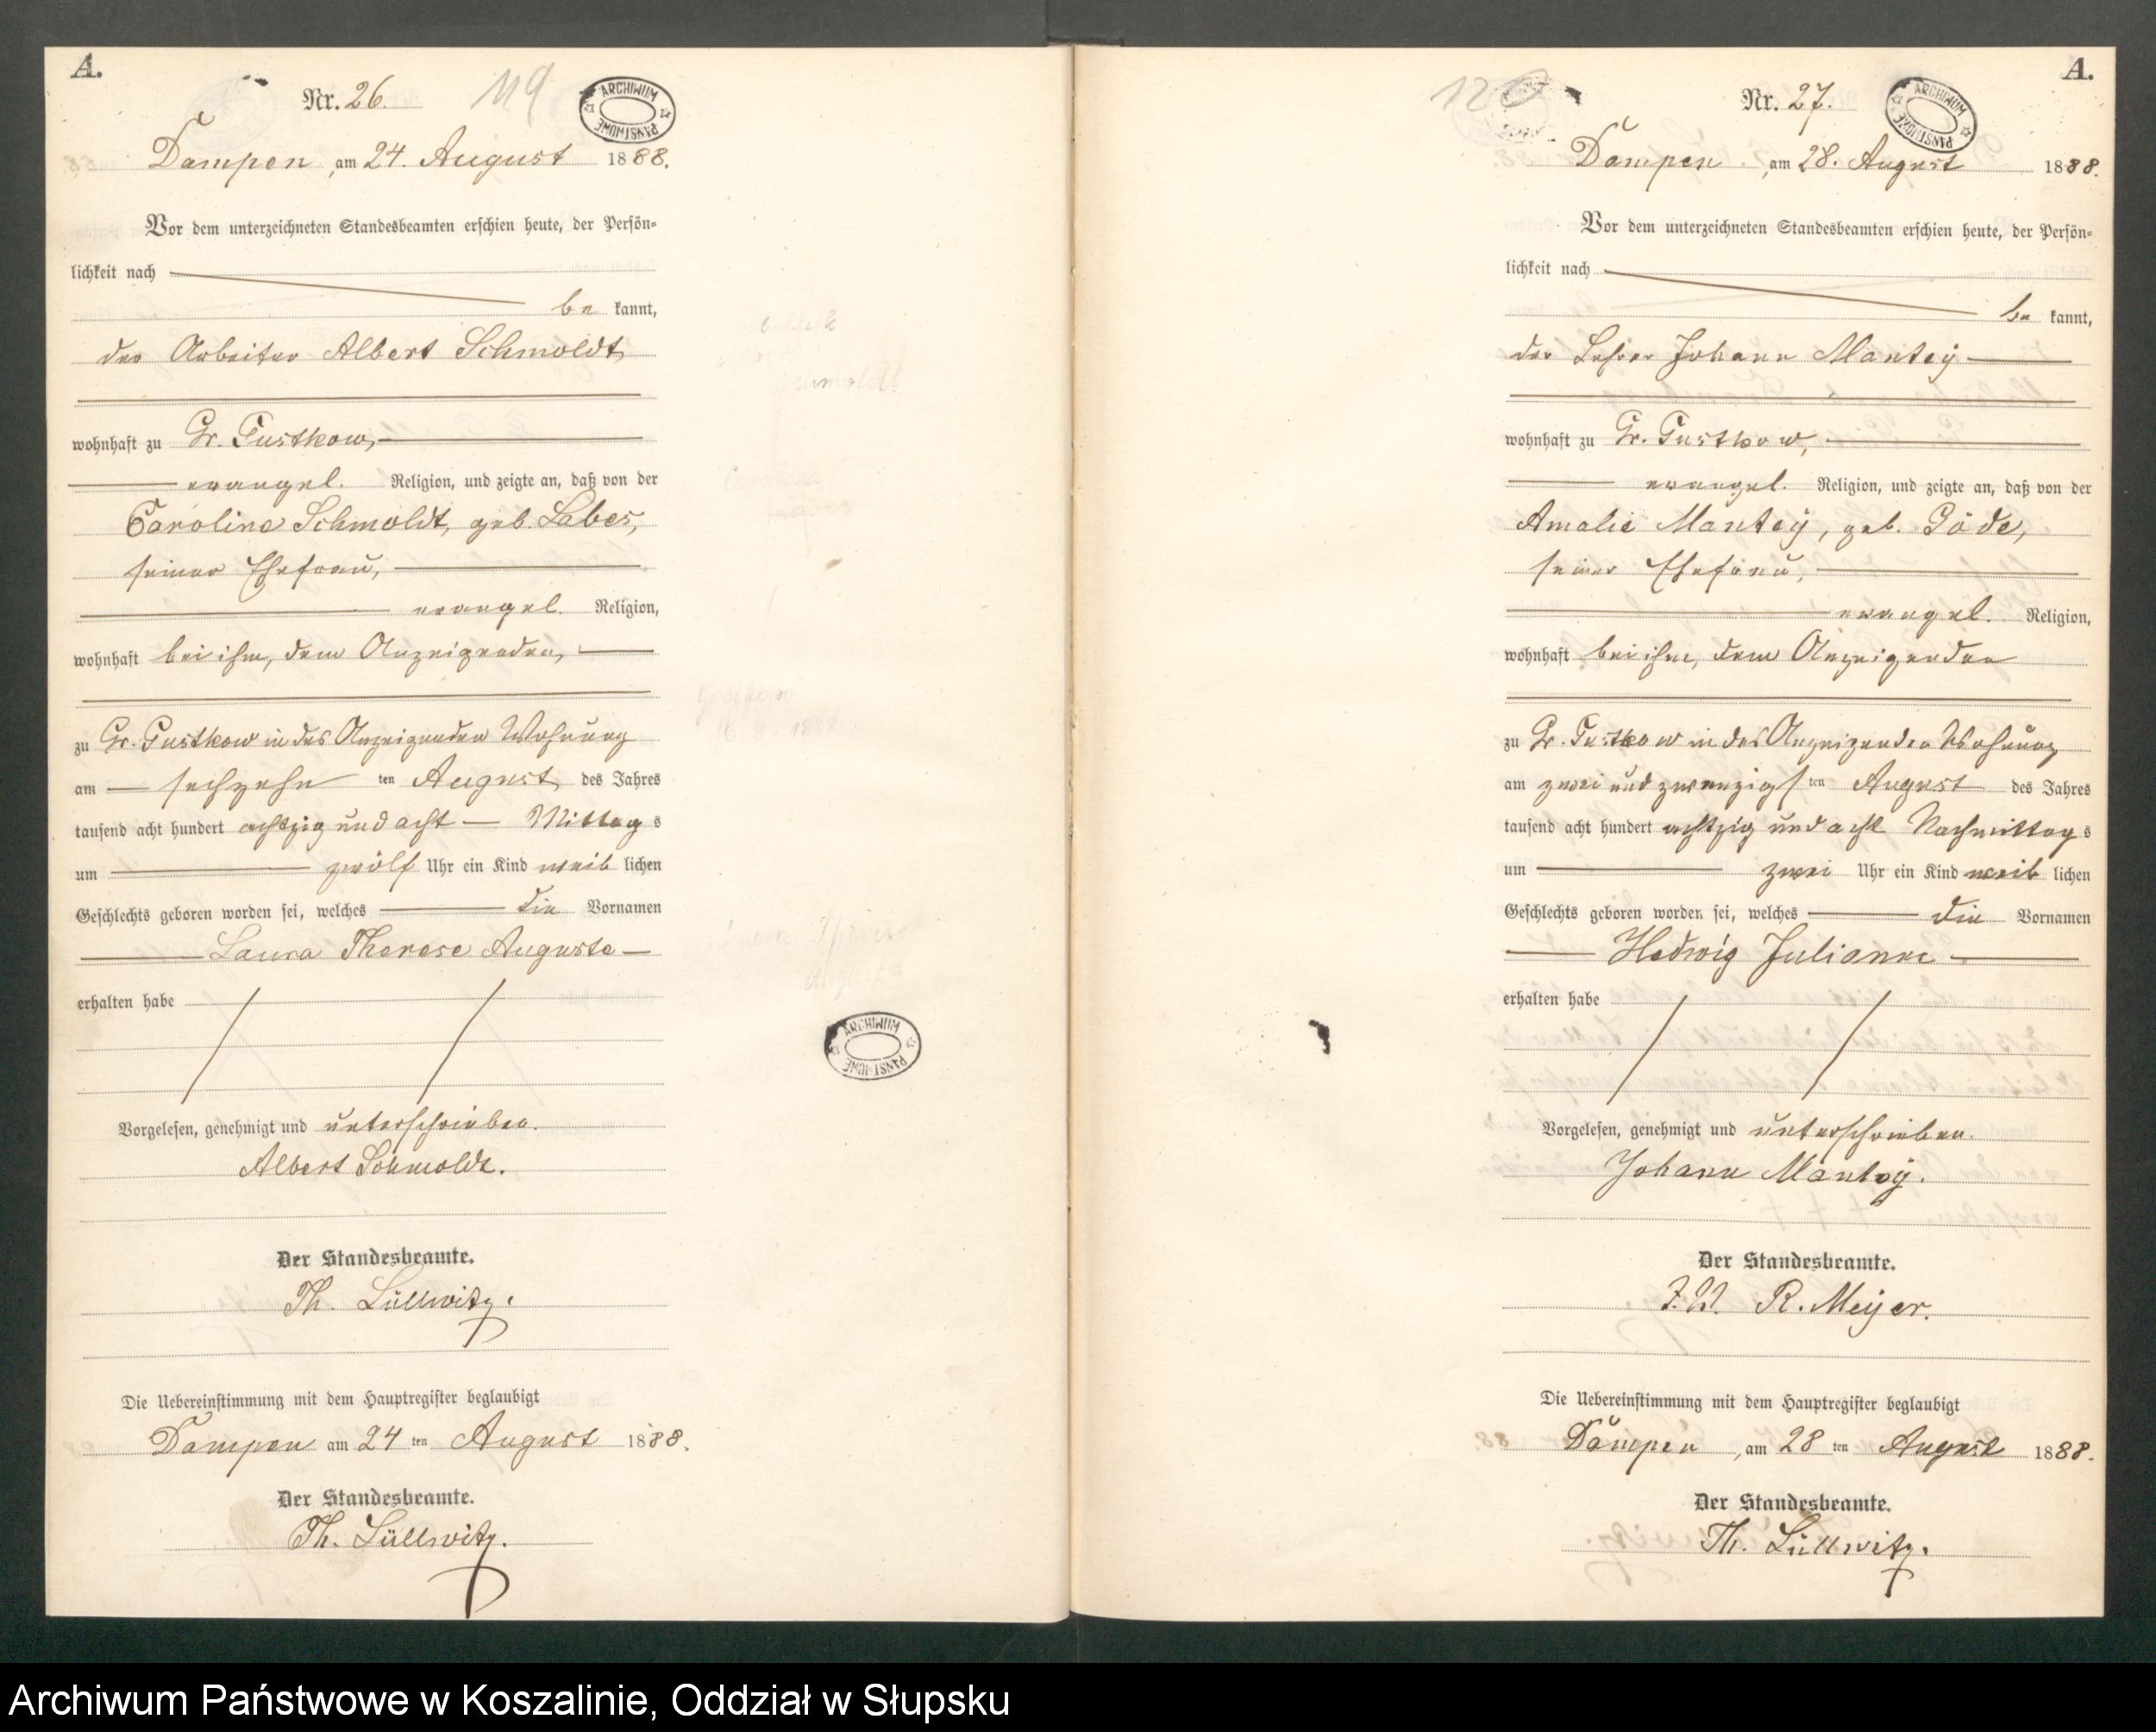 A.
Nr. 26.
119
ARCHIWUM PAŃSTWOWE
Dampen, am 24. August 1888.
Vor dem unterzeichneten Standesbeamten erschien heute, der Persön-
lichkeit nach
be kannt,
der Arbeiter Albert Schmoldt,
wohnhaft zu Gr. Tustkow,
evangel. Religion, und zeigte an, daß von der
Caroline Schmoldt, geb. Labes,
seiner Ehefrau,
evangel. Religion,
wohnhaft bei ihm, dem Anzeigenden,
zu Gr. Tustkow in des Anzeigenden Wohnung
am sechzehn ten August des Jahres
tausend acht hundert achtzig und acht Mittag s
um zwölf Uhr ein Kind weib lichen
Geschlechts geboren worden sei, welches die Vornamen
Laura Therese Auguste
erhalten habe
Vorgelesen, genehmigt und unterschrieben.
Albert Schmoldt.
Der Standesbeamte.
Th. Lüllwitz.
Die Uebereinstimmung mit dem Hauptregister beglaubigt
Dampen am 24 ten August 1888.
Der Standesbeamte.
Th. Lüllwitz.
Schmoldt
ARCHIWUM PAŃSTWOWE
A.
120
Nr. 27.
ARCHIWUM PAŃSTWOWE
Dampen, am 28. August 1888.
Vor dem unterzeichneten Standesbeamten erschien heute, der Persön-
lichkeit nach
be kannt,
der Lehrer Johann Mantey
wohnhaft zu Gr. Tustkow,
evangel. Religion, und zeigte an, daß von der
Amalie Mantey, geb. Göde,
seiner Ehefrau,
evangel. Religion,
wohnhaft bei ihm, dem Anzeigenden
zu Gr. Tustkow in des Anzeigenden Wohnung
am zwei und zwanzigs ten August des Jahres
tausend acht hundert achtzig und acht Nachmittag s
um zwei Uhr ein Kind weib lichen
Geschlechts geboren worden sei, welches die Vornamen
Hedwig Julianne
erhalten habe
Vorgelesen, genehmigt und unterschrieben.
Johann Mantey.
Der Standesbeamte.
I. V. R. Meyer.
Die Uebereinstimmung mit dem Hauptregister beglaubigt
Dampen, am 28 ten August 1888.
Der Standesbeamte.
Th. Lüllwitz.
Archiwum Państwowe w Koszalinie, Oddział w Słupsku